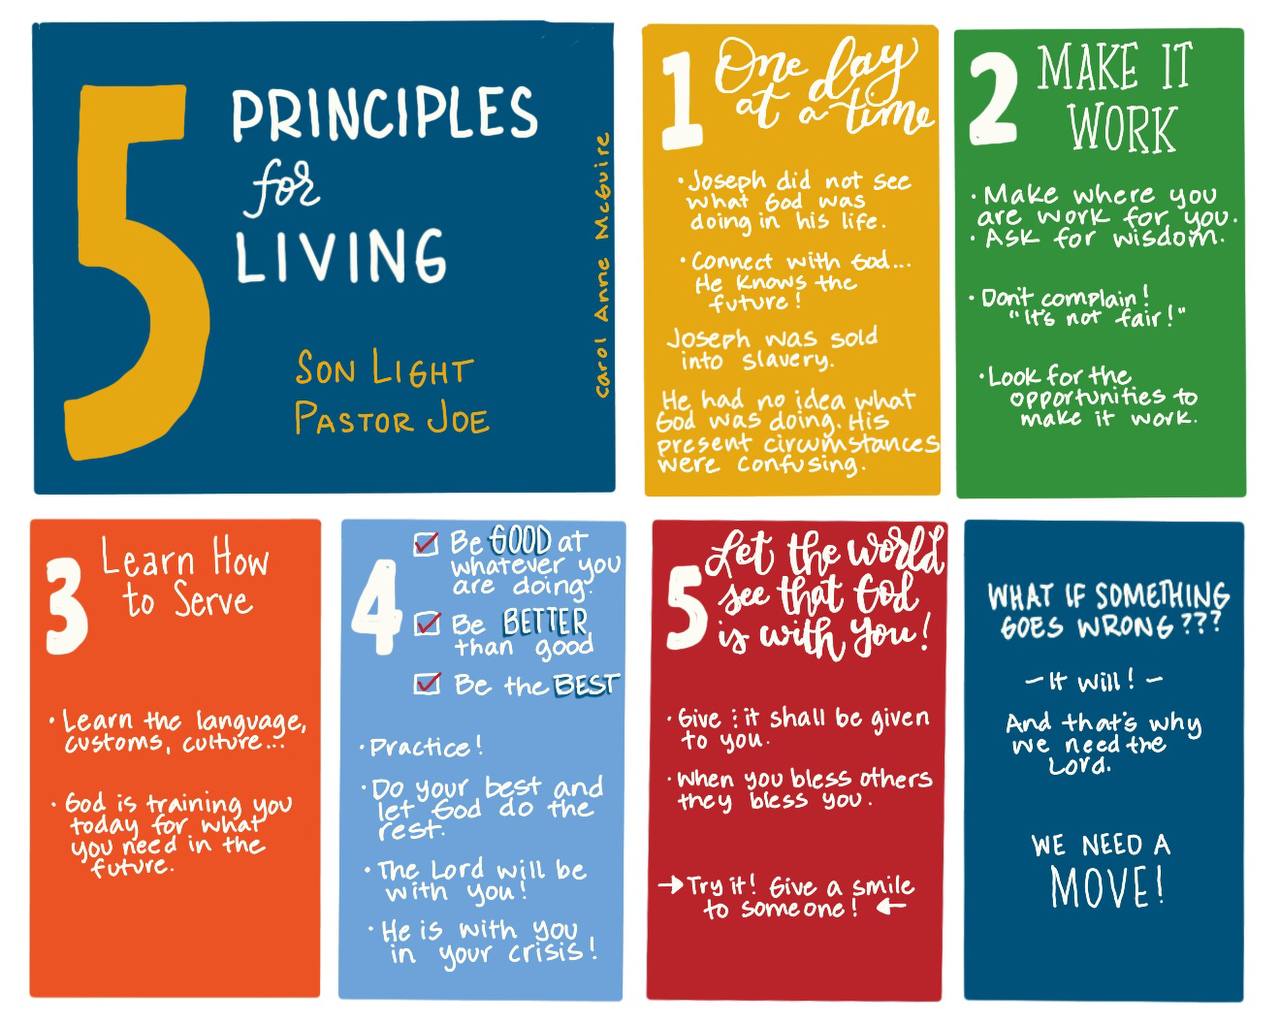 5
PRINCIPLES
for
LIVING
SON LIGHT
PASTOR JOE
Carol Anne McGuire
1
One day
at a time
• Joseph did not see
what God was
doing in his life.
• Connect with God...
He knows the
future!
Joseph was sold
into slavery.
He had no idea what
God was doing. His
present circumstances
were confusing.
2
MAKE IT
WORK
• Make where you
are work for you.
• Ask for wisdom.
• Don't complain!
"It's not fair!"
• Look for the
opportunities to
make it work.
3
Learn How
to Serve
• Learn the language,
customs, culture...
• God is training you
today for what
you need in the
future.
4
Be GOOD at
whatever you
are doing.
Be BETTER
than good
Be the BEST
• Practice!
• Do your best and
let God do the
rest.
• The Lord will be
with you!
• He is with you
in your crisis!
5
Let the world
see that God
is with you!
• Give : it shall be given
to you.
• When you bless others
they bless you.
→ Try it! Give a smile
to someone! ←
WHAT IF SOMETHING
GOES WRONG???
- It will! -
And that's why
we need the
Lord.
WE NEED A
MOVE!